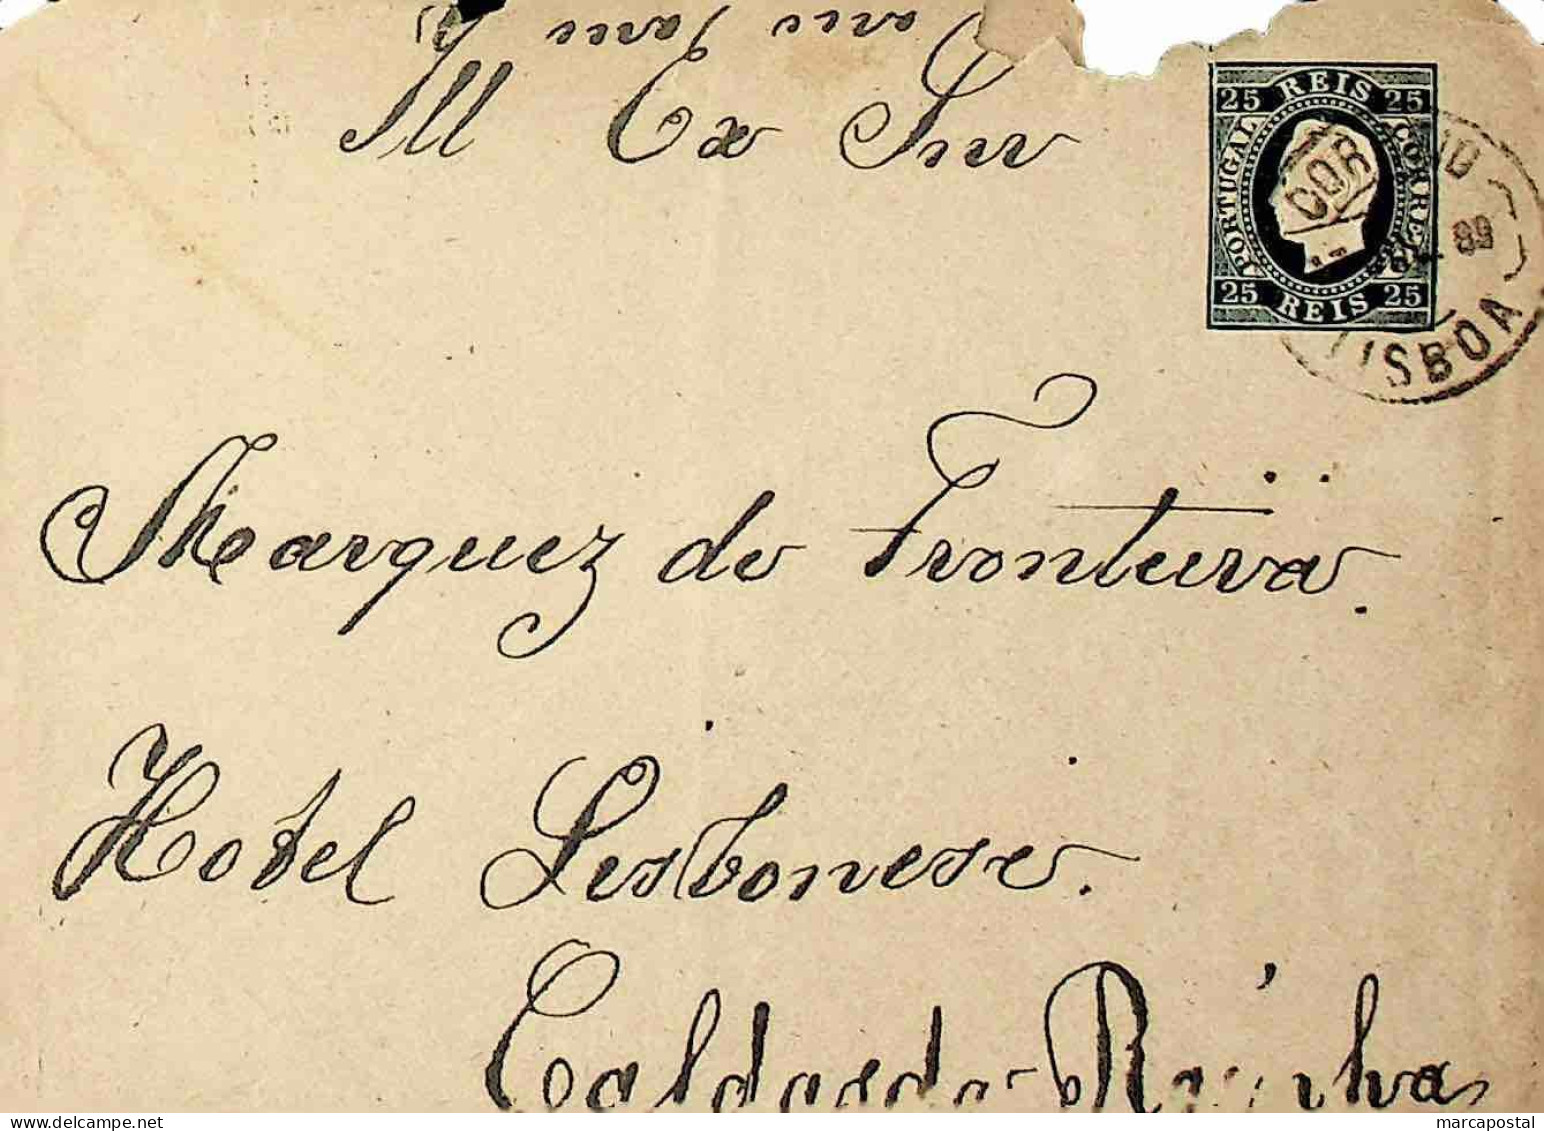 Ill Ex Snr
25 REIS 25
PORTUGAL
CORREIO
25 REIS 25
COR
89
LISBOA
Marquez de Fronteira.
Hotel Lisbonese.
Caldas da Rainha
marcapostal